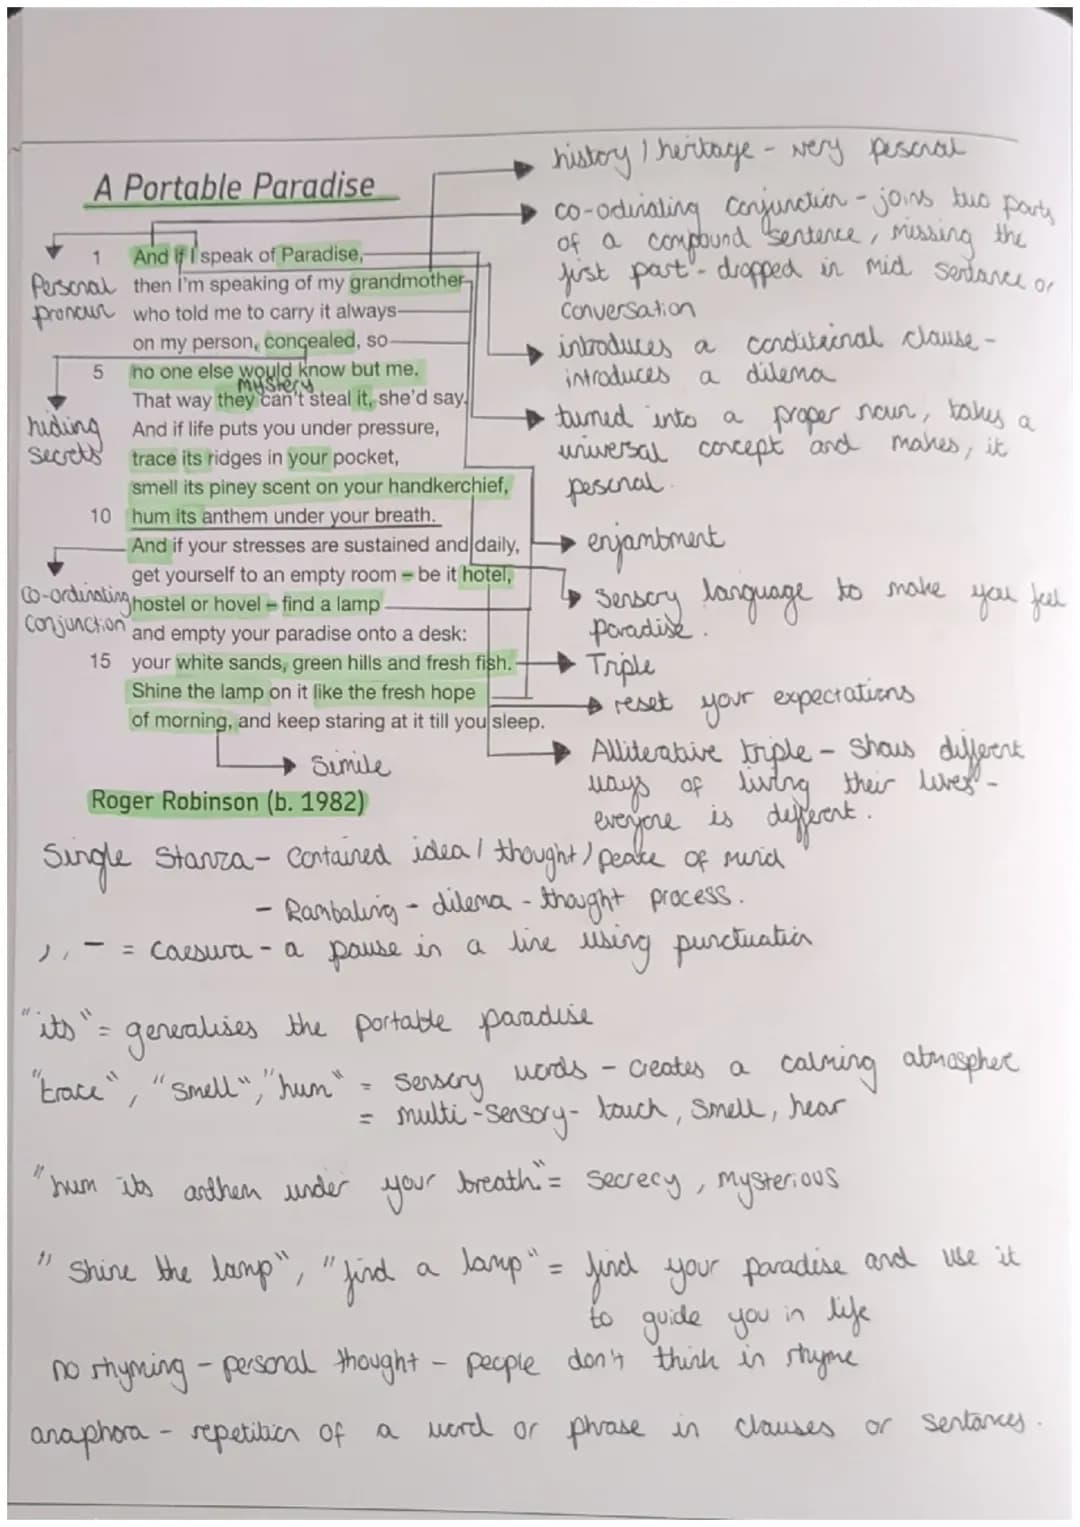 A Portable Paradise
1 And if I speak of Paradise,
then I'm speaking of my grandmother
who told me to carry it always
on my person, concealed, so
5 no one else would know but me.
mystery
That way they can't steal it, she'd say.
And if life puts you under pressure,
trace its ridges in your pocket,
smell its piney scent on your handkerchief,
10 hum its anthem under your breath.
And if your stresses are sustained and daily,
get yourself to an empty room – be it hotel,
hostel or hovel – find a lamp
and empty your paradise onto a desk:
15 your white sands, green hills and fresh fish.
Shine the lamp on it like the fresh hope
of morning, and keep staring at it till you sleep.
Roger Robinson (b. 1982)
Personal
pronoun
hiding
secrets
co-ordinating
conjunction
Simile
history / heritage - very pesonal
co-odinating conjunction - joins two parts
of a compound sentence, missing the
first part - dropped in mid sentance or
conversation
introduces a conditional clause -
introduces a dilema
turned into a proper noun, takes a
universal concept and makes, it
pesonal.
enjambment
Sensory language to make you feel
paradise.
Triple
reset your expectations
Alliterative triple - shows different
ways of living their lives -
everyone is different.
Single Stanza - Contained idea / thought / peace of mind
- Rambaling - dilema - thought process.
, , - = caesura - a pause in a line using punctuation
"its" = generalises the portable paradise
"trace", "smell", "hum" = sensory words - creates a calming atmospher
= multi-sensory - touch, smell, hear
"hum its anthem under your breath." = secrecy, mysterious
"Shine the lamp", "find a lamp" = find your paradise and use it
to guide you in life
no rhyming - personal thought - people don't think in rhyme
anaphora - repetition of a word or phrase in clauses or sentances.